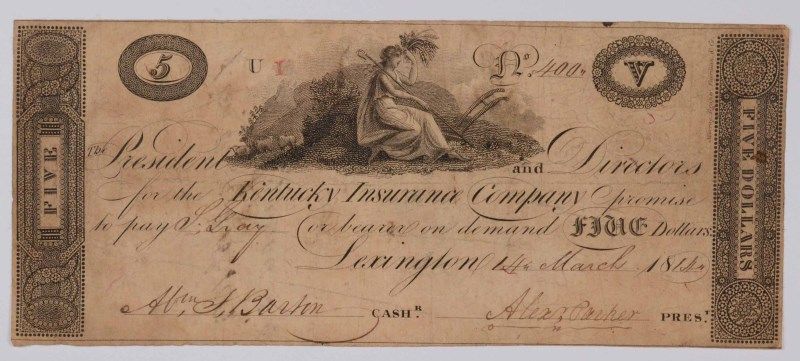 5 U I No. 400 V
The President and Directors
for the Kentucky Insurance Company promise
to pay S. Gray or bearer on demand FIVE Dollars
Lexington 14 March 181
Abm S. Barton CASHR. Alexr Parker PREST.
FIVE
FIVE DOLLARS